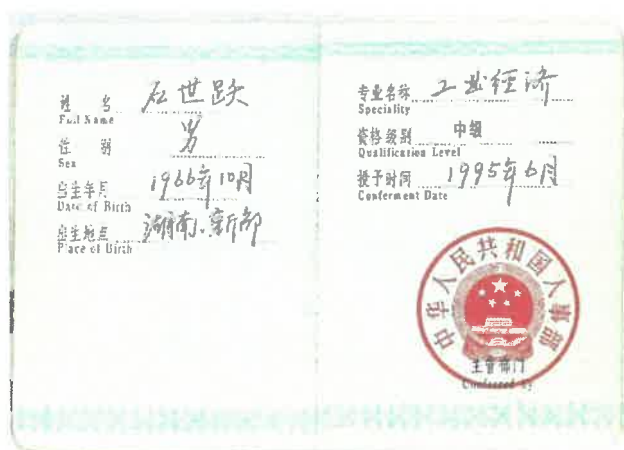 姓 名 石世跃
Full Name
性 别 男
Sex
出生年月 1966年10月
Date of Birth
出生地点 湖南.新邵
Place of Birth
专业名称 工业经济
Speciality
资格级别 中级
Qualification Level
授予时间 1995年6月
Conferment Date
中华人民共和国人事部
主管部门
Conferred by